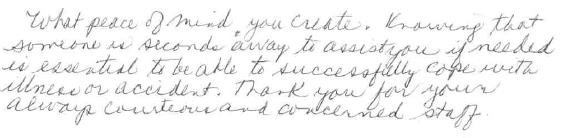 What peace of mind you create. Knowing that
someone is seconds away to assist you if needed
is essential to be able to successfully cope with
illness or accident. Thank you for your
always courteous and concerned staff.